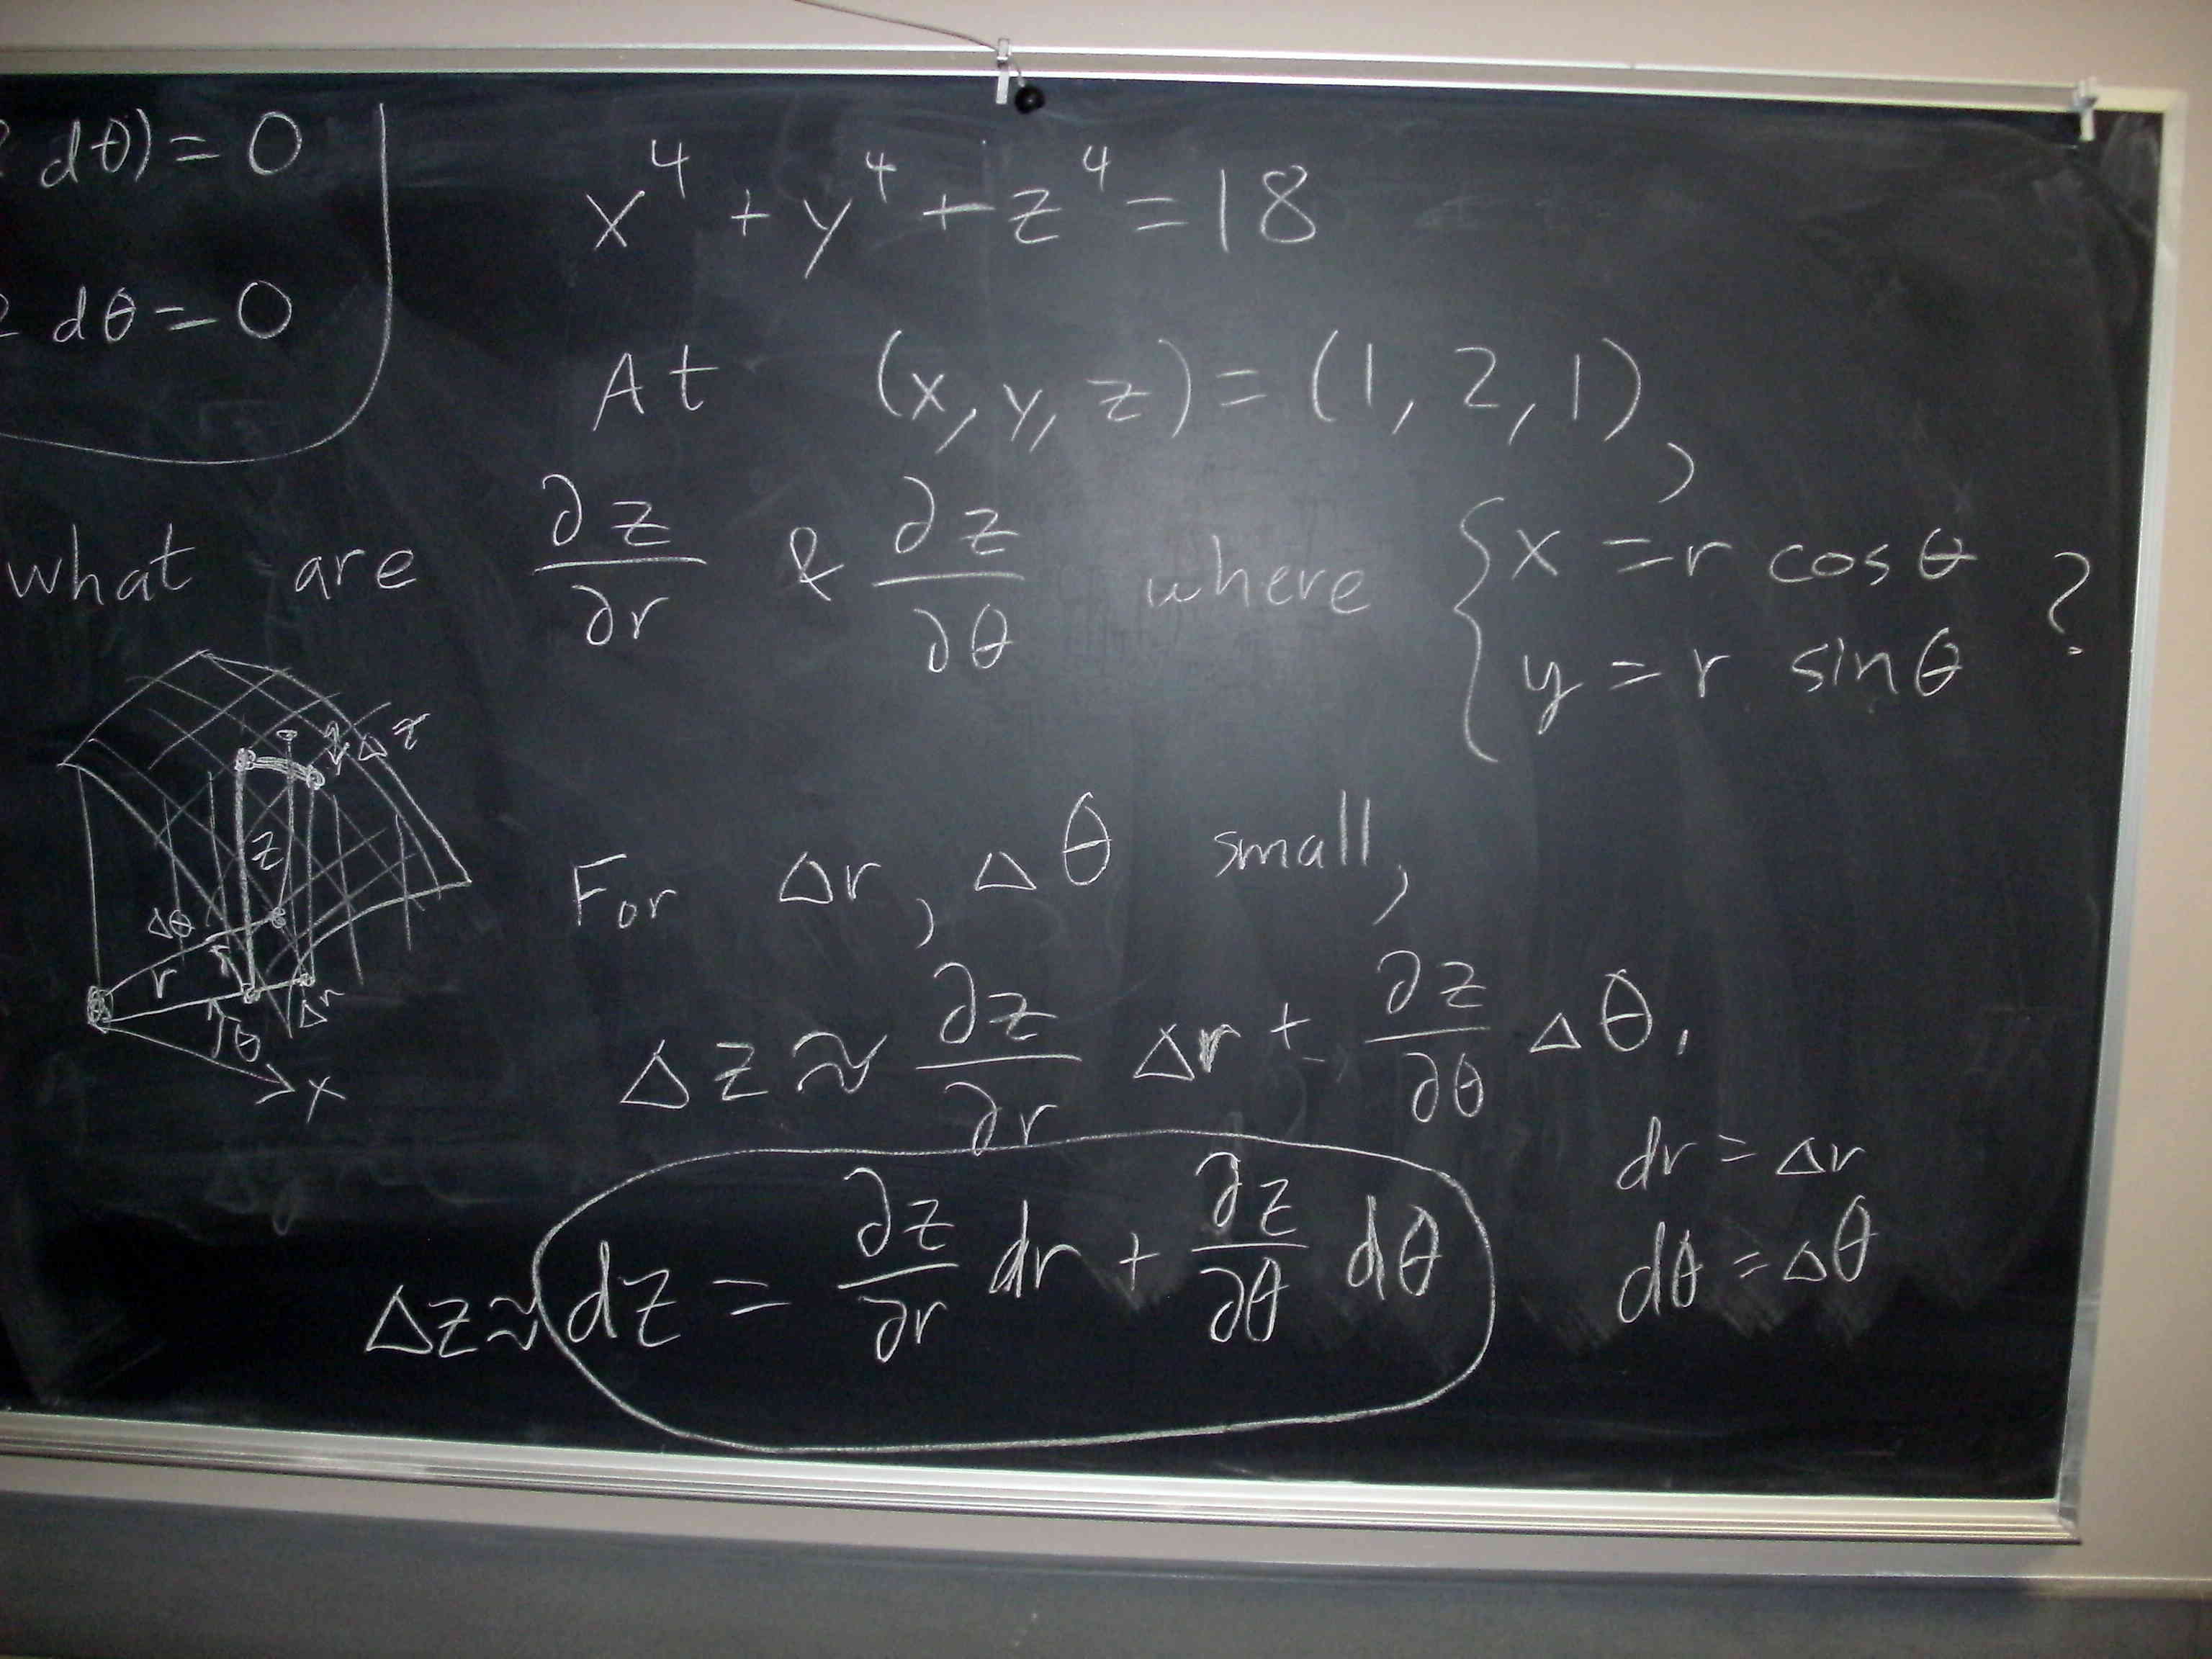 dθ) = 0
2 dθ = 0
x⁴ + y⁴ + z⁴ = 18
At (x, y, z) = (1, 2, 1),
what are ∂z/∂r & ∂z/∂θ where { x = r cos θ
y = r sin θ ?
Δz
z
Δθ
r
Δr
θ
x
For Δr, Δθ small,
Δz ≈ ∂z/∂r Δr + ∂z/∂θ Δθ.
dr = Δr
dθ = Δθ
Δz ≈ dz = ∂z/∂r dr + ∂z/∂θ dθ